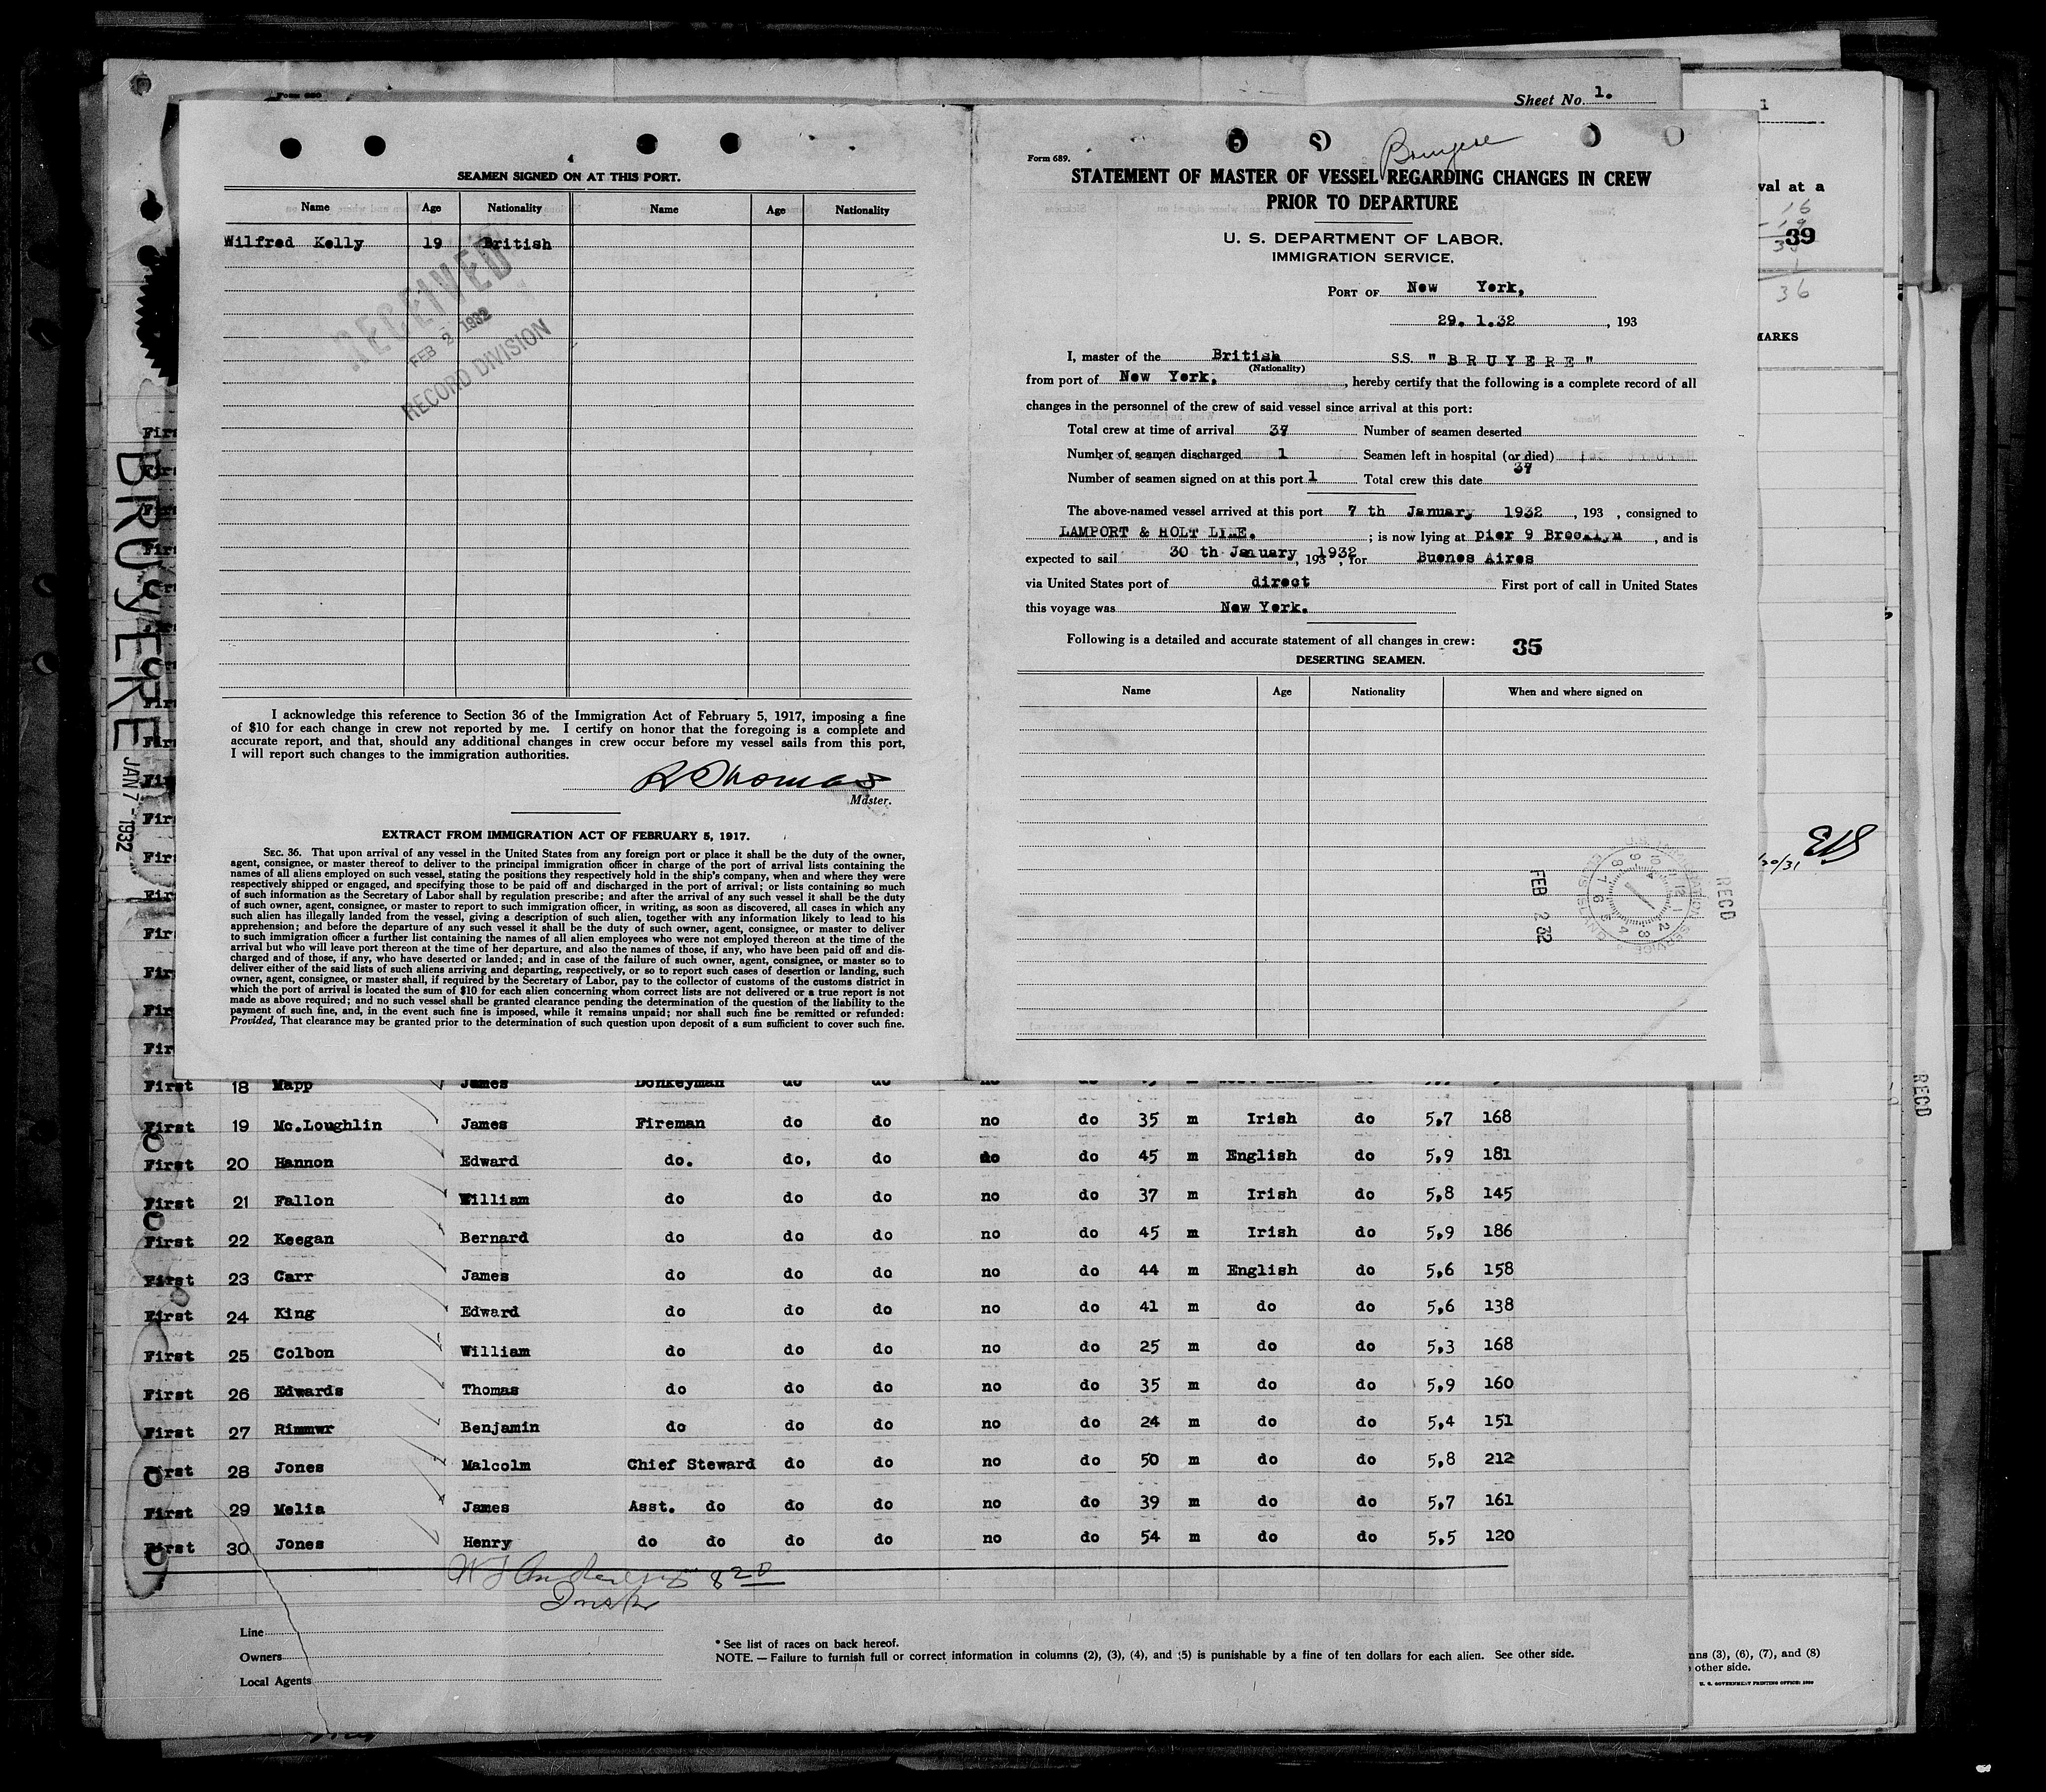 Sheet No. 1.
SEAMEN SIGNED ON AT THIS PORT.
Name Age Nationality Name Age Nationality
Wilfred Kelly 19 British
RECEIVED
FEB 2 1932
RECORD DIVISION
I acknowledge this reference to Section 36 of the Immigration Act of February 5, 1917, imposing a fine
of $10 for each change in crew not reported by me. I certify on honor that the foregoing is a complete and
accurate report, and that, should any additional changes in crew occur before my vessel sails from this port,
I will report such changes to the immigration authorities.
R Thomas
Master.
EXTRACT FROM IMMIGRATION ACT OF FEBRUARY 5, 1917.
SEC. 36. That upon arrival of any vessel in the United States from any foreign port or place it shall be the duty of the owner,
agent, consignee, or master thereof to deliver to the principal immigration officer in charge of the port of arrival lists containing the
names of all aliens employed on such vessel, stating the positions they respectively hold in the ship's company, when and where they were
respectively shipped or engaged, and specifying those to be paid off and discharged in the port of arrival; or lists containing so much
of such information as the Secretary of Labor shall by regulation prescribe; and after the arrival of any such vessel it shall be the duty
of such owner, agent, consignee, or master to report to such immigration officer, in writing, as soon as discovered, all cases in which any
such alien has illegally landed from the vessel, giving a description of such alien, together with any information likely to lead to his
apprehension; and before the departure of any such vessel it shall be the duty of such owner, agent, consignee, or master to deliver
to such immigration officer a further list containing the names of all alien employees who were not employed thereon at the time of the
arrival but who will leave port thereon at the time of her departure, and also the names of those, if any, who have been paid off and dis-
charged and of those, if any, who have deserted or landed; and in case of the failure of such owner, agent, consignee, or master so to
deliver either of the said lists of such aliens arriving and departing, respectively, or so to report such cases of desertion or landing, such
owner, agent, consignee, or master shall, if required by the Secretary of Labor, pay to the collector of customs of the customs district in
which the port of arrival is located the sum of $10 for each alien concerning whom correct lists are not delivered or a true report is not
made as above required; and no such vessel shall be granted clearance pending the determination of the question of the liability to the
payment of such fine, and, in the event such fine is imposed, while it remains unpaid; nor shall such fine be remitted or refunded:
Provided, That clearance may be granted prior to the determination of such question upon deposit of a sum sufficient to cover such fine.
Bruyere
Form 689.
STATEMENT OF MASTER OF VESSEL REGARDING CHANGES IN CREW
PRIOR TO DEPARTURE
U. S. DEPARTMENT OF LABOR,
IMMIGRATION SERVICE,
PORT OF New York,
29. 1.32, 193
I, master of the British SS. "BRUYERE"
(Nationality)
from port of New York, hereby certify that the following is a complete record of all
changes in the personnel of the crew of said vessel since arrival at this port:
Total crew at time of arrival 37 Number of seamen deserted
Number of seamen discharged 1 Seamen left in hospital (or died)
Number of seamen signed on at this port 1 Total crew this date 37
The above-named vessel arrived at this port 7 th January 1932, 193 , consigned to
LAMPORT & HOLT LINE. ; is now lying at pier 9 Brooklyn, and is
expected to sail 30 th January, 1932, 193 , for Buenos Aires
via United States port of direct First port of call in United States
this voyage was New York.
Following is a detailed and accurate statement of all changes in crew: 35
DESERTING SEAMEN.
Name Age Nationality When and where signed on
FEB 2 32
RECD
BRUYERE
JAN 7-1932
val at a
16
19
39
36
MARKS
RECD
First 18 Mapp James Donkeyman do do
First 19 Mc.Loughlin James Fireman do do no do 35 m Irish do 5,7 168
First 20 Hannon Edward do. do, do do do 45 m English do 5,9 181
First 21 Fallon William do do do no do 37 m Irish do 5,8 145
First 22 Keegan Bernard do do do no do 45 m Irish do 5,9 186
First 23 Carr James do do do no do 44 m English do 5,6 158
First 24 King Edward do do do no do 41 m do do 5,6 138
First 25 Colbon William do do do no do 25 m do do 5,3 168
First 26 Edwards Thomas do do do no do 35 m do do 5,9 160
First 27 Rimmwr Benjamin do do do no do 24 m do do 5,4 151
First 28 Jones Malcolm Chief Steward do do no do 50 m do do 5,8 212
First 29 Melia James Asst. do do do no do 39 m do do 5,7 161
First 30 Jones Henry do do do do no do 54 m do do 5,5 120
Line
Owners
Local Agents
* See list of races on back hereof.
NOTE. — Failure to furnish full or correct information in columns (2), (3), (4), and (5) is punishable by a fine of ten dollars for each alien. See other side.
(3), (6), (7), and (8)
other side.
U. S. GOVERNMENT PRINTING OFFICE: 1930